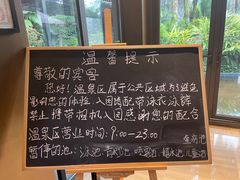 温馨提示
尊敬的宾客
您好！温泉区属于公共区域，为了避免
影响您的体验，入园请配带泳衣泳裤
禁止携带相机入园感谢您的配合
温泉区营业时间：9:00-23:00
暂停的池：泳池